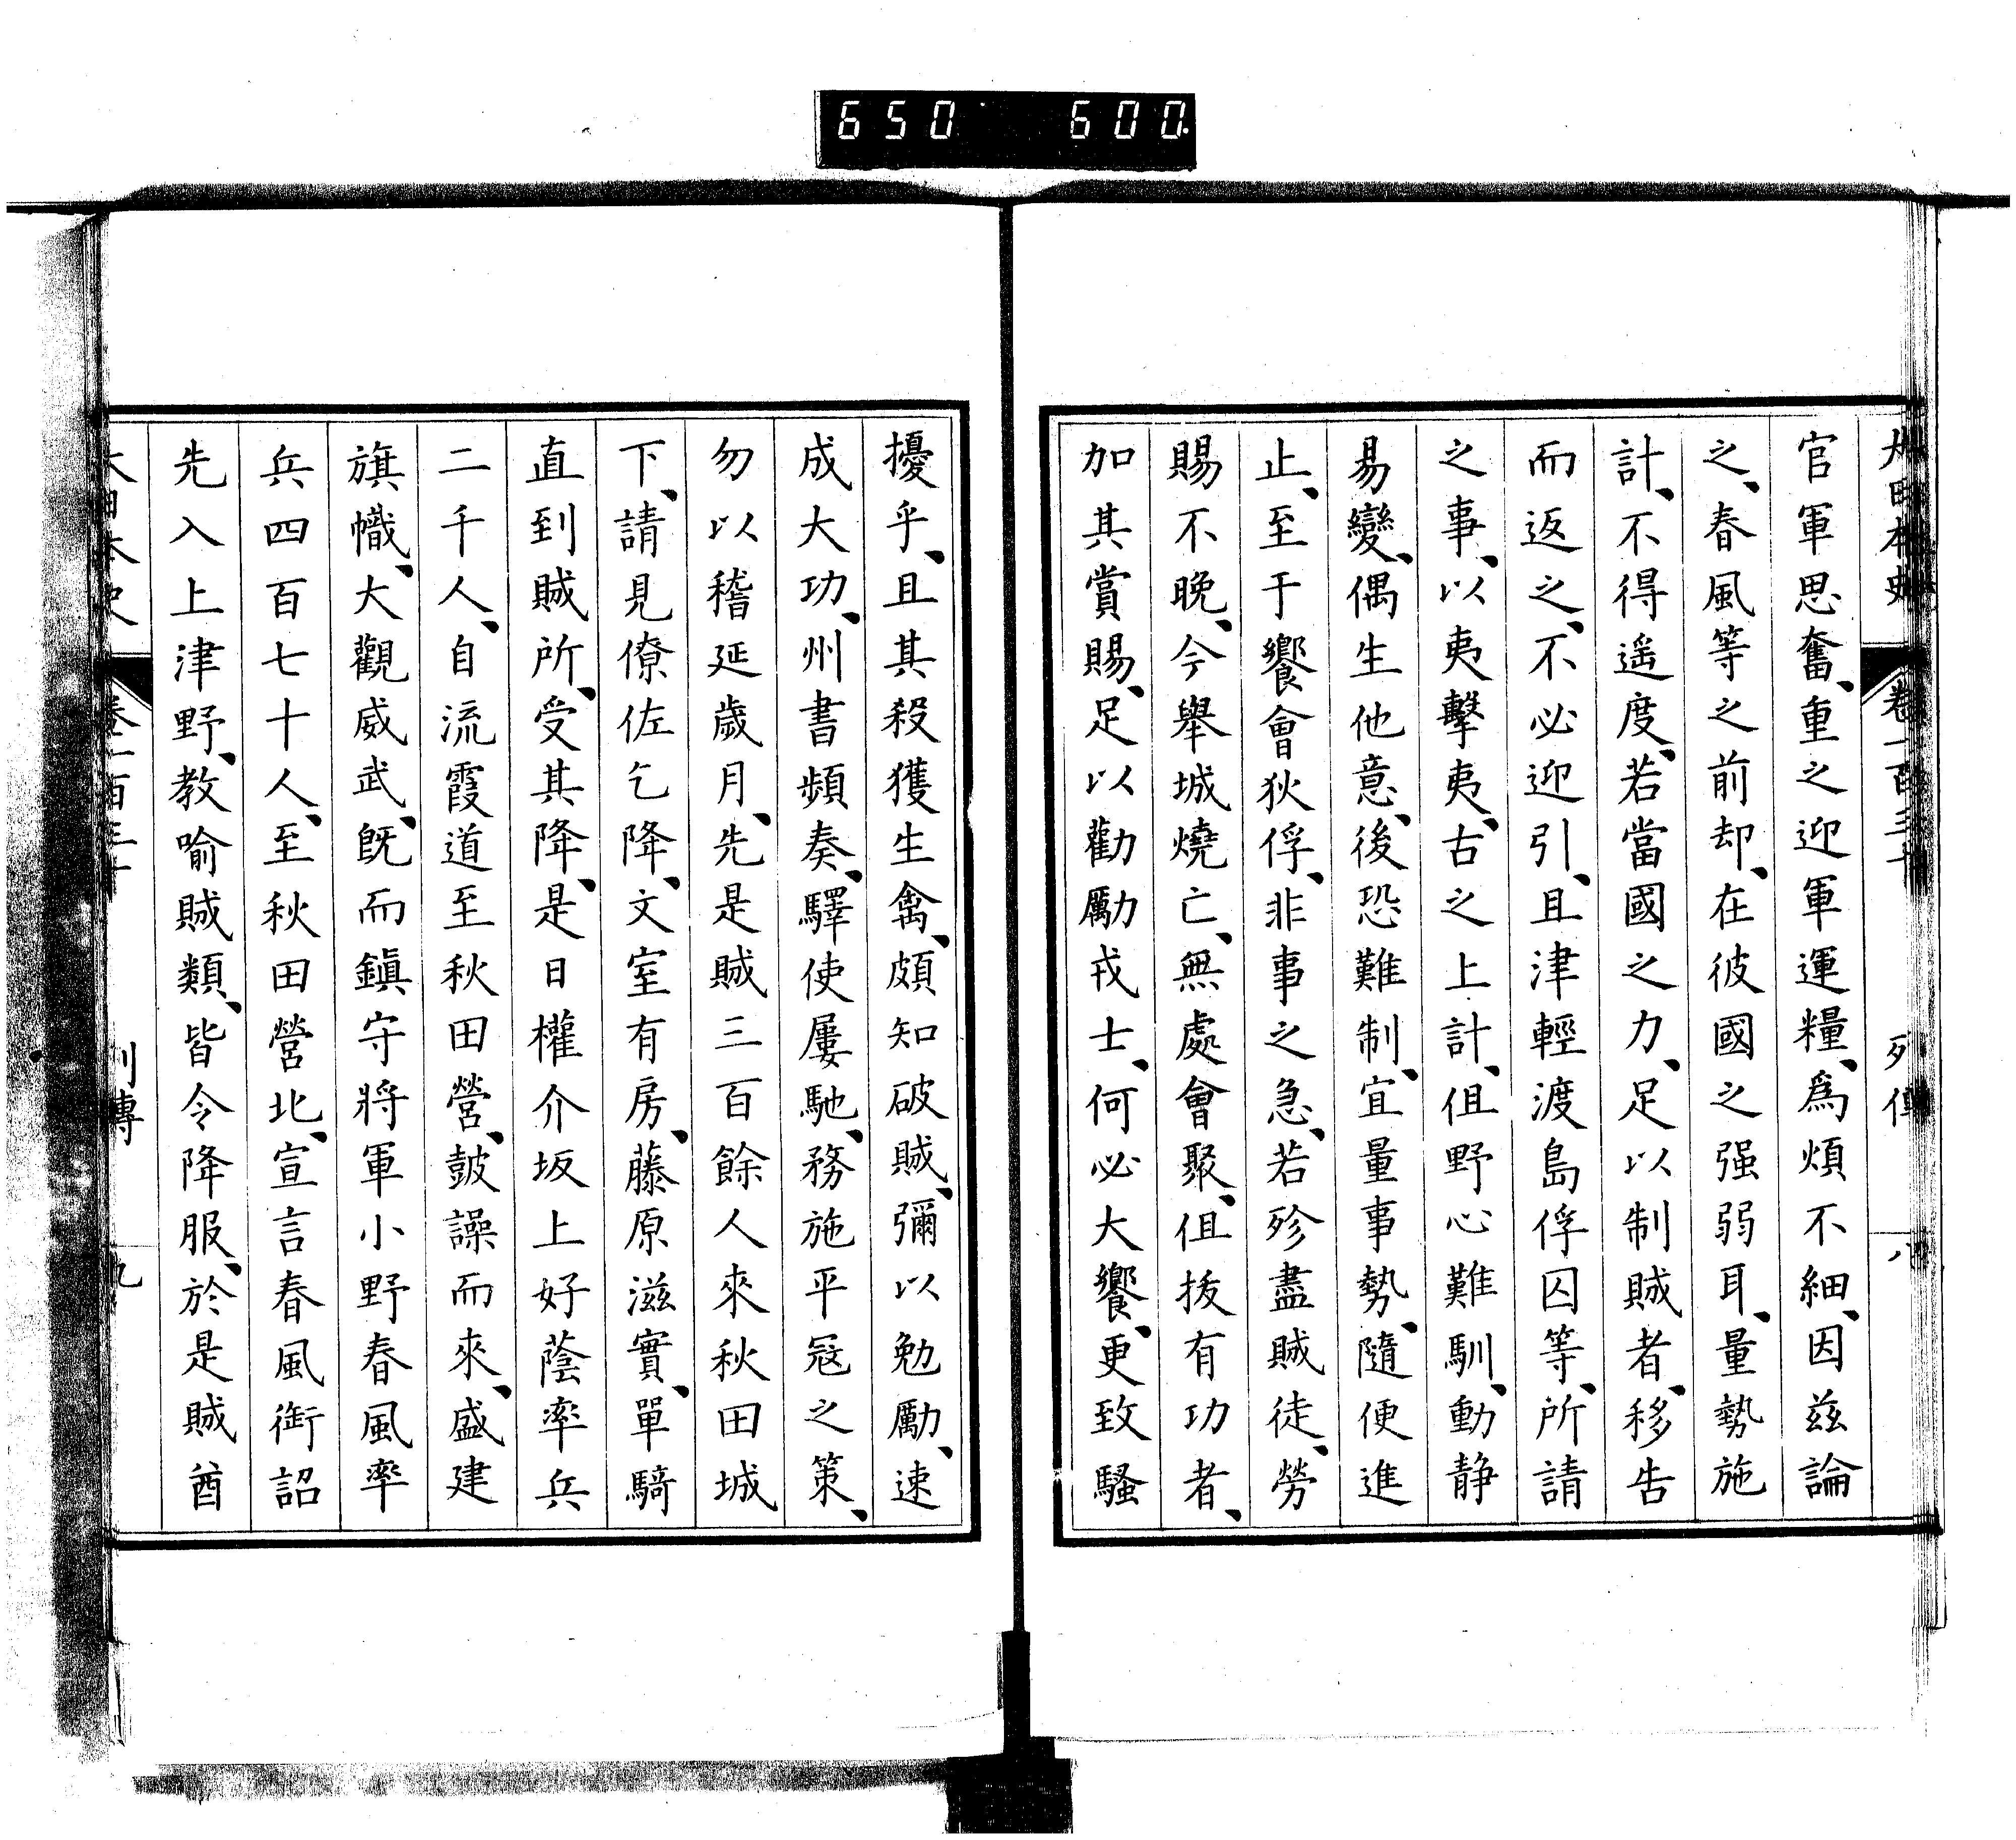 650 600
大日本史 卷一百三十 列傳 八
官軍思奮、重之迎軍運糧、爲煩不細、因茲論
之、春風等之前却、在彼國之强弱耳、量勢施
計、不得遥度、若當國之力、足以制賊者、移告
而返之、不必迎引、且津輕渡島俘囚等、所請
之事、以夷擊夷、古之上計、但野心難馴、動静
易變、偶生他意、後恐難制、宜量事勢、隨便進
止、至于饗會狄俘、非事之急、若殄盡賊徒、勞
賜不晚、今舉城燒亡、無處會聚、但拔有功者、
加其賞賜、足以勸勵戎士、何必大饗、更致騷
擾乎、且其殺獲生禽、頗知破賊、彌以勉勵、速
成大功、州書頻奏、驛使屢馳、務施平冦之策、
勿以稽延歲月、先是賊三百餘人來秋田城
下、請見僚佐乞降、文室有房、藤原滋實、單騎
直到賊所、受其降、是日權介坂上好蔭率兵
二千人、自流霞道至秋田營、鼓譟而來、盛建
旗幟、大觀威武、旣而鎭守將軍小野春風率
兵四百七十人、至秋田營北、宣言春風銜詔
先入上津野、教喻賊類、皆令降服、於是賊酋
大日本史 卷一百三十 列傳 九